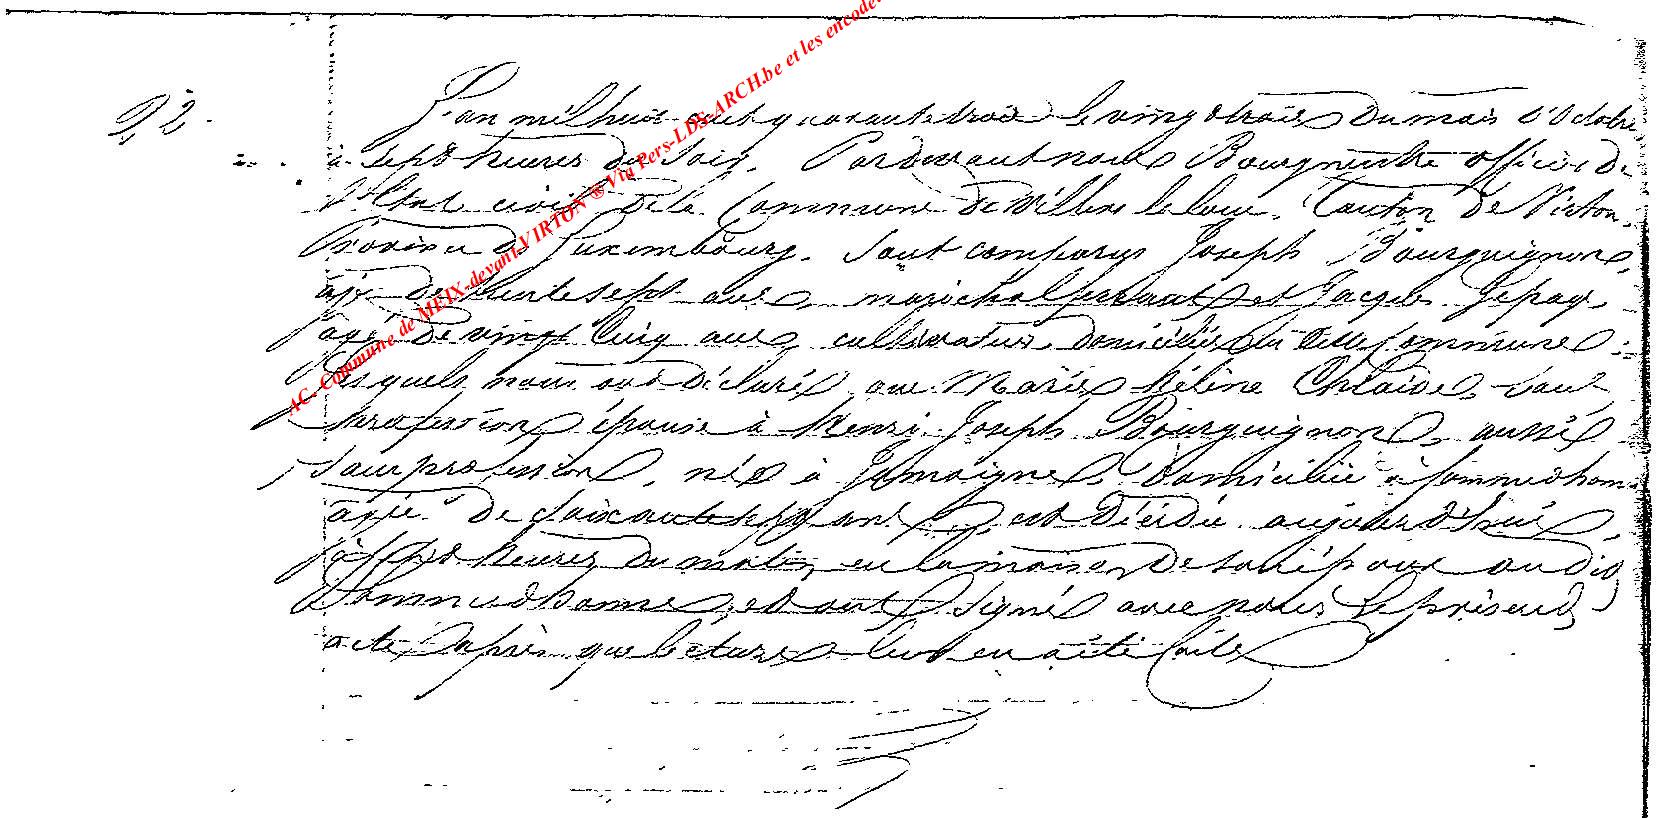 22.
L'an mil huit cent quarante trois le vingt trois du mois d'Octobre
à sept heures du soir. Pardevant nous Bourgmestre officier de
l'Etat civil de la Commune de Villers la loue, Canton de Virton,
Province de Luxembourg. Sont comparus Joseph Bourguignon,
âgé de trente sept ans, maréchal ferrant et Jacques
âgé de vingt cinq ans cultivateur, domiciliés en cette commune
lesquels nous ont déclaré que Marie Héline sans
profession, épouse à Henri Joseph Bourguignon, aussi
sans profession, née à Jamoigne, domiciliée à Sommethonne
âgée de soixante sept ans, est décédée aujourd'hui,
à sept heures du matin, en la maison de son époux audit
Sommethonne, et ont signé avec nous le présent
acte après que lecture leur en a été faite
AC. Commune de MEIX-devant-VIRTON ® Via Pers-LDS-ARCH.be et les encode